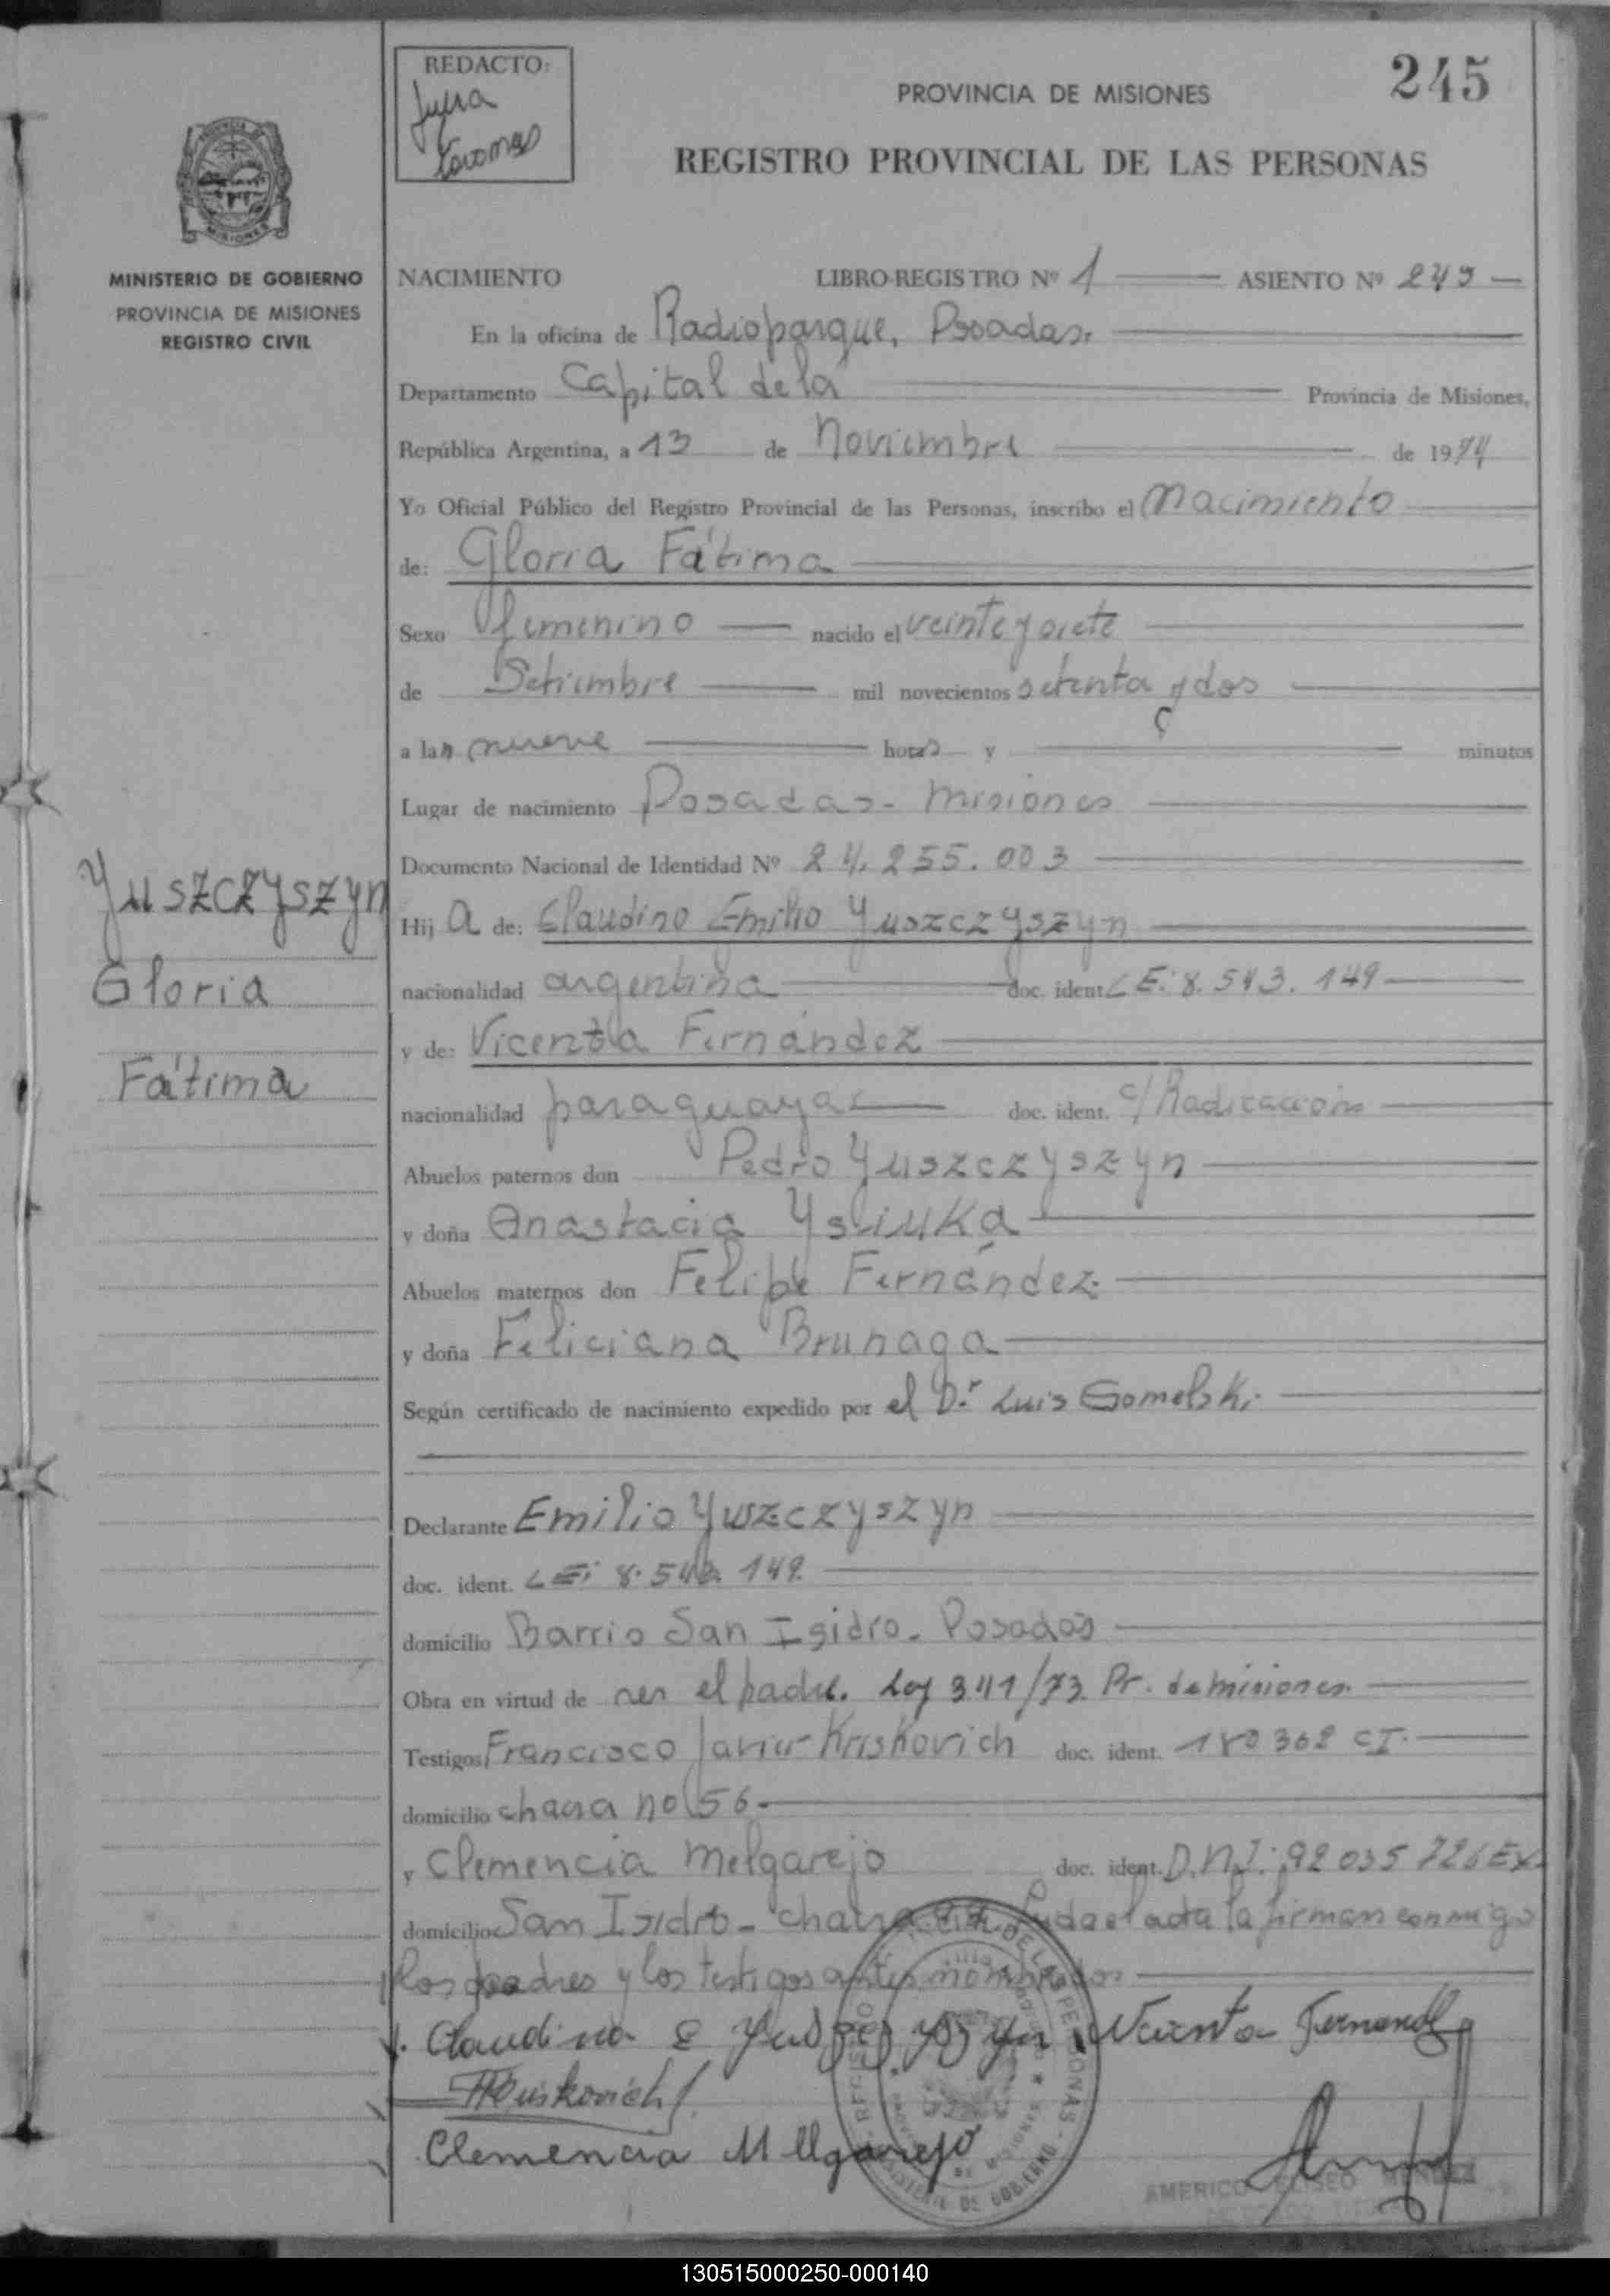 245
REDACTO:
PROVINCIA DE MISIONES
REGISTRO PROVINCIAL DE LAS PERSONAS
MISIONES
MINISTERIO DE GOBIERNO
PROVINCIA DE MISIONES
REGISTRO CIVIL
NACIMIENTO LIBRO-REGISTRO Nº 1 ASIENTO Nº 245
En la oficina de Radioparque, Posadas.
Departamento Capital de la Provincia de Misiones,
República Argentina, a 13 de Noviembre de 1974
Yo Oficial Público del Registro Provincial de las Personas, inscribo el Nacimiento
de: Gloria Fátima
Sexo femenino nacido el veinte y siete
de Setiembre mil novecientos setenta y dos
a las nueve horas y minutos
Lugar de nacimiento Posadas - Misiones
Documento Nacional de Identidad Nº 24.255.003
Yuszczyszyn
Gloria
Fátima
Hij a de: Claudino Emilio Yuszczyszyn
nacionalidad argentina doc. ident. L E: 8.543.149
y de: Vicenta Fernández
nacionalidad paraguaya doc. ident. c/ Radicación
Abuelos paternos don Pedro Yuszczyszyn
y doña Anastacia Ysliuka
Abuelos maternos don Felipe Fernández
y doña Feliciana Brunaga
Según certificado de nacimiento expedido por el Dr. Luis Gomelski
Declarante Emilio Yuszczyszyn
doc. ident. LE: 8.543.149.
domicilio Barrio San Isidro - Posadas
Obra en virtud de ser el padre. Ley 341/73. Pr. de misiones.
Testigos Francisco Javier Kriskovich doc. ident. 180362 CI.
domicilio chacra no 56.
y Clemencia Melgarejo doc. ident. D.N.I: 92 035 726 Ex
domicilio San Isidro - chacra Leida el acta la firman conmigo
los padres y los testigos antes nombrados
Claudino E Yuszczyszyn Vicenta Fernandez
Kriskovich
Clemencia Melgarejo
AMERICO ELISEO MENDEZ
130515000250-000140